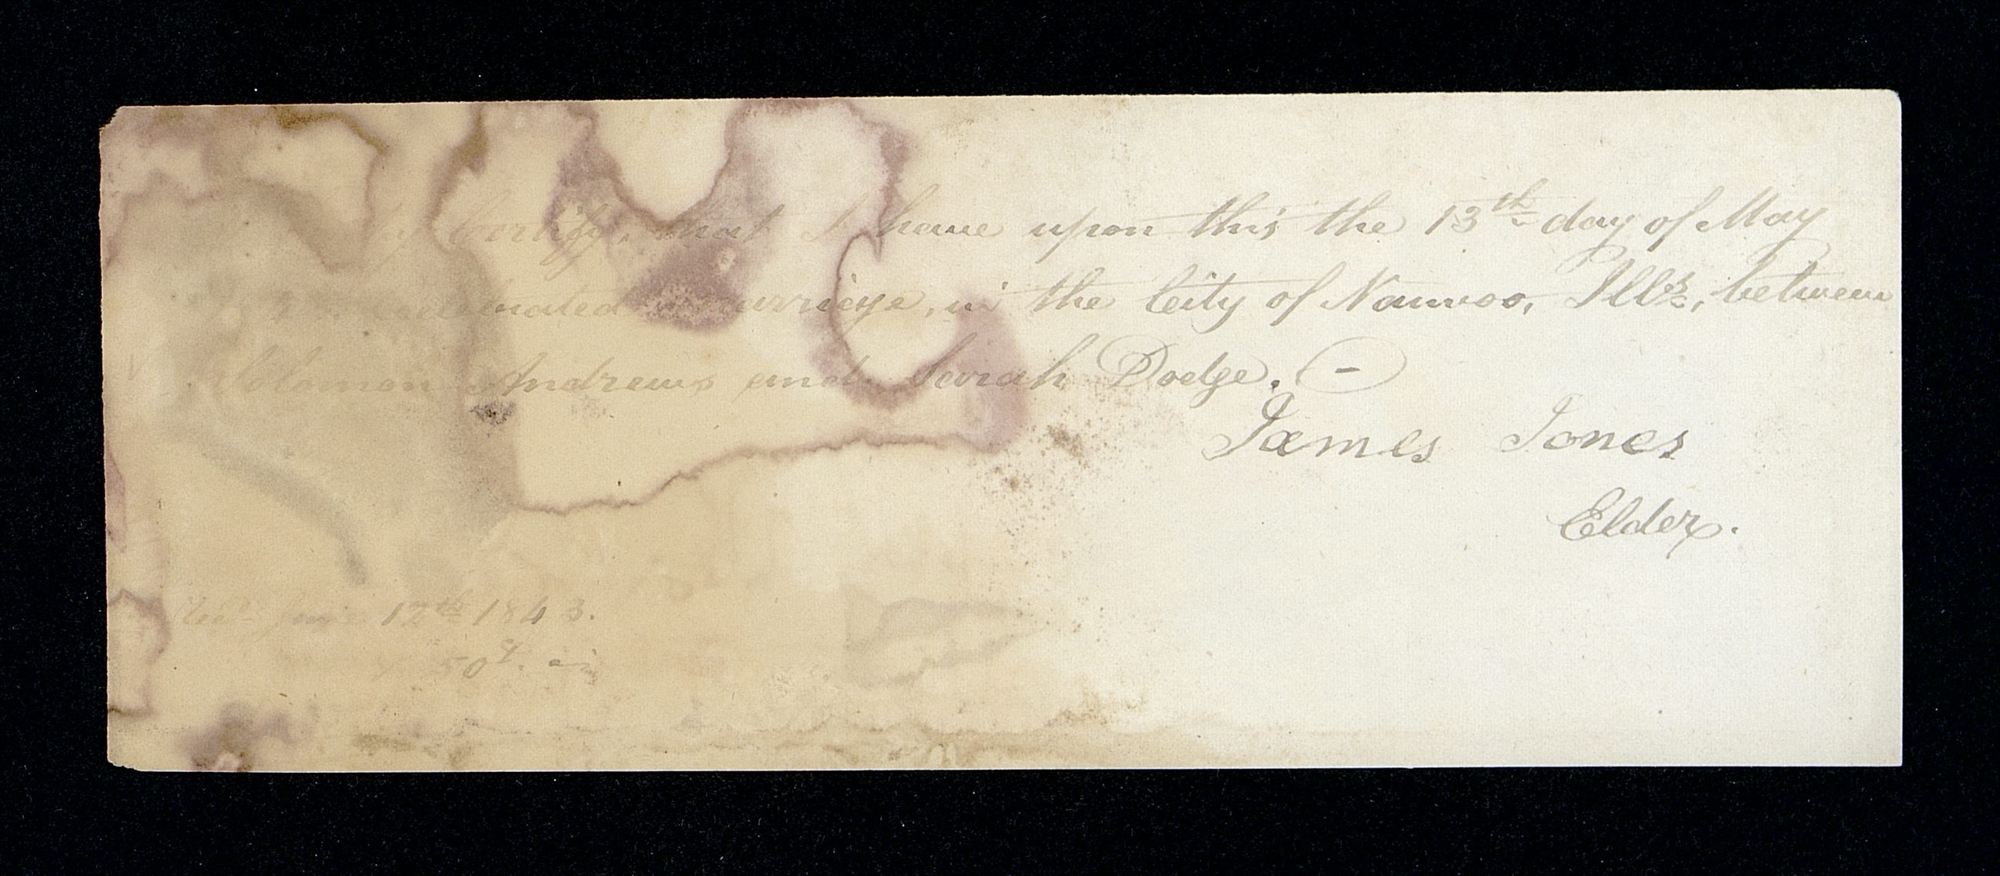 certify, that I have upon this the 13th day of May
celebrated a marriage, in the City of Nauvoo, Ills, between
Solomon Andrews and Sarah Dodge. —
James Jones
Elder.
Rec'd June 12th 1843.